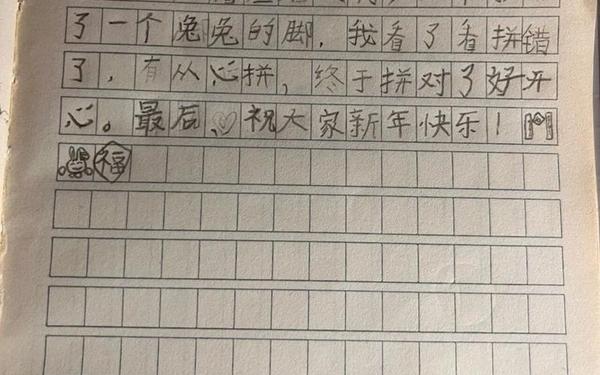 了一个兔兔的脚，我看了看拼错
了，有从心拼，终于拼对了好开
心。最后、祝大家新年快乐！
福